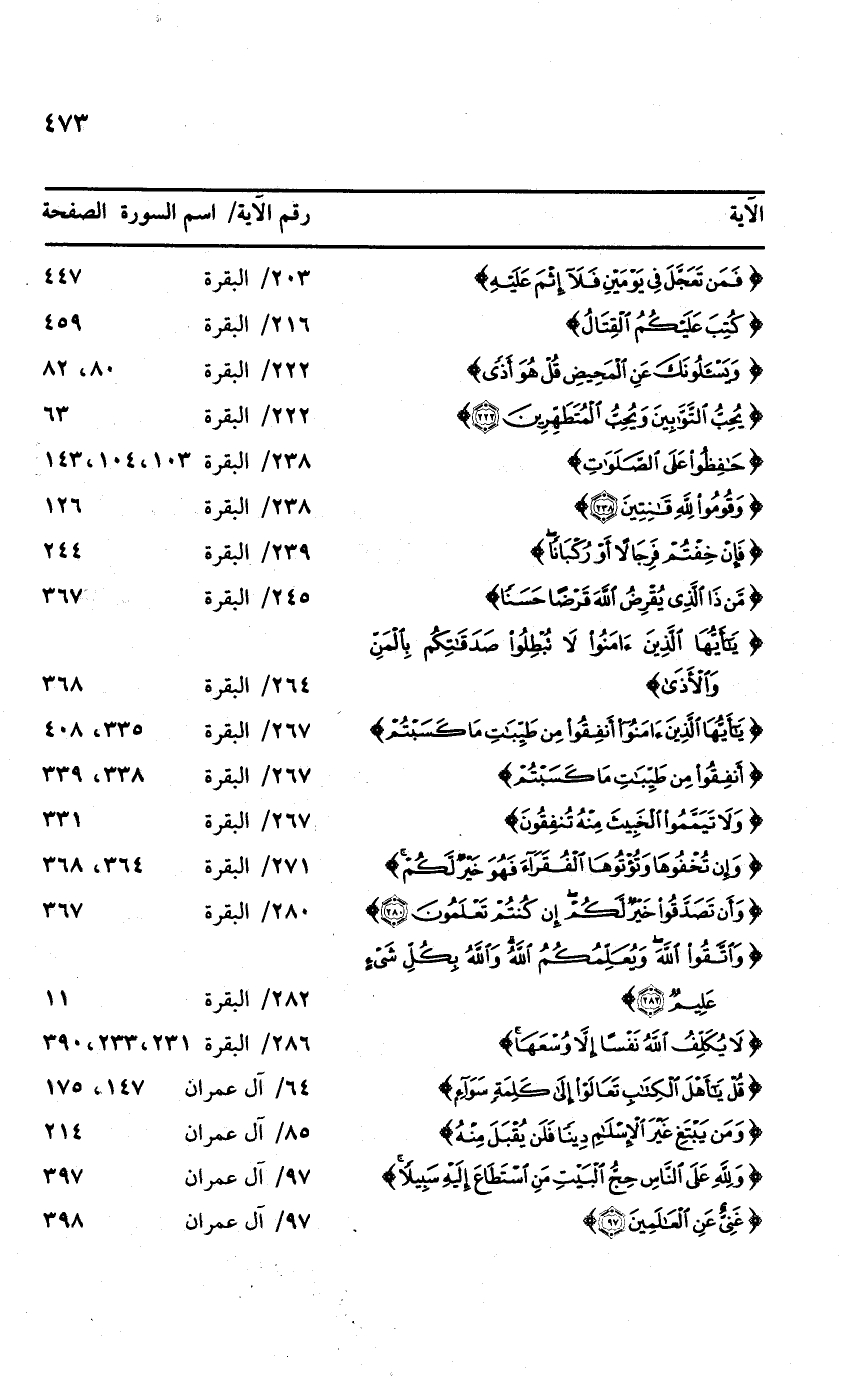 ٤٧٣
الآية رقم الآية/ اسم السورة الصفحة
﴿ فَمَن تَعَجَّلَ فِي يَوْمَيْنِ فَلَآ إِثْمَ عَلَيْهِ﴾ ٢٠٣/ البقرة ٤٤٧
﴿ كُتِبَ عَلَيْكُمُ ٱلْقِتَالُ﴾ ٢١٦/ البقرة ٤٥٩
﴿ وَيَسْـَٔلُونَكَ عَنِ ٱلْمَحِيضِ قُلْ هُوَ أَذًى﴾ ٢٢٢/ البقرة ٨٠، ٨٢
﴿ يُحِبُّ ٱلتَّوَّٰبِينَ وَيُحِبُّ ٱلْمُتَطَهِّرِينَ ٢٢٢﴾ ٢٢٢/ البقرة ٦٣
﴿ حَٰفِظُواْ عَلَى ٱلصَّلَوَٰتِ﴾ ٢٣٨/ البقرة ١٠٣، ١٠٤، ١٤٣
﴿ وَقُومُواْ لِلَّهِ قَٰنِتِينَ ٢٣٨﴾ ٢٣٨/ البقرة ١٢٦
﴿ فَإِنْ خِفْتُمْ فَرِجَالًا أَوْ رُكْبَانًاۖ﴾ ٢٣٩/ البقرة ٢٤٤
﴿ مَّن ذَا ٱلَّذِى يُقْرِضُ ٱللَّهَ قَرْضًا حَسَنًا﴾ ٢٤٥/ البقرة ٣٦٧
﴿ يَٰٓأَيُّهَا ٱلَّذِينَ ءَامَنُواْ لَا تُبْطِلُواْ صَدَقَٰتِكُم بِٱلْمَنِّ
وَٱلْأَذَىٰ﴾ ٢٦٤/ البقرة ٣٦٨
﴿ يَٰٓأَيُّهَا ٱلَّذِينَ ءَامَنُوٓاْ أَنفِقُواْ مِن طَيِّبَٰتِ مَا كَسَبْتُمْ﴾ ٢٦٧/ البقرة ٣٣٥، ٤٠٨
﴿ أَنفِقُواْ مِن طَيِّبَٰتِ مَا كَسَبْتُمْ﴾ ٢٦٧/ البقرة ٣٣٨، ٣٣٩
﴿ وَلَا تَيَمَّمُواْ ٱلْخَبِيثَ مِنْهُ تُنفِقُونَ﴾ ٢٦٧/ البقرة ٣٣١
﴿ وَإِن تُخْفُوهَا وَتُؤْتُوهَا ٱلْفُقَرَآءَ فَهُوَ خَيْرٌ لَّكُمْۚ﴾ ٢٧١/ البقرة ٣٦٤، ٣٦٨
﴿ وَأَن تَصَدَّقُواْ خَيْرٌ لَّكُمْۖ إِن كُنتُمْ تَعْلَمُونَ ٢٨٠﴾ ٢٨٠/ البقرة ٣٦٧
﴿ وَٱتَّقُواْ ٱللَّهَۖ وَيُعَلِّمُكُمُ ٱللَّهُۗ وَٱللَّهُ بِكُلِّ شَىْءٍ
عَلِيمٌ ٢٨٢﴾ ٢٨٢/ البقرة ١١
﴿ لَا يُكَلِّفُ ٱللَّهُ نَفْسًا إِلَّا وُسْعَهَاۚ﴾ ٢٨٦/ البقرة ٢٣١، ٢٣٣، ٣٩٠
﴿ قُلْ يَٰٓأَهْلَ ٱلْكِتَٰبِ تَعَالَوْاْ إِلَىٰ كَلِمَةٍ سَوَآءٍ﴾ ٦٤/ آل عمران ١٤٧، ١٧٥
﴿ وَمَن يَبْتَغِ غَيْرَ ٱلْإِسْلَٰمِ دِينًا فَلَن يُقْبَلَ مِنْهُ﴾ ٨٥/ آل عمران ٢١٤
﴿ وَلِلَّهِ عَلَى ٱلنَّاسِ حِجُّ ٱلْبَيْتِ مَنِ ٱسْتَطَاعَ إِلَيْهِ سَبِيلًاۚ﴾ ٩٧/ آل عمران ٣٩٧
﴿ غَنِىٌّ عَنِ ٱلْعَٰلَمِينَ ٩٧﴾ ٩٧/ آل عمران ٣٩٨